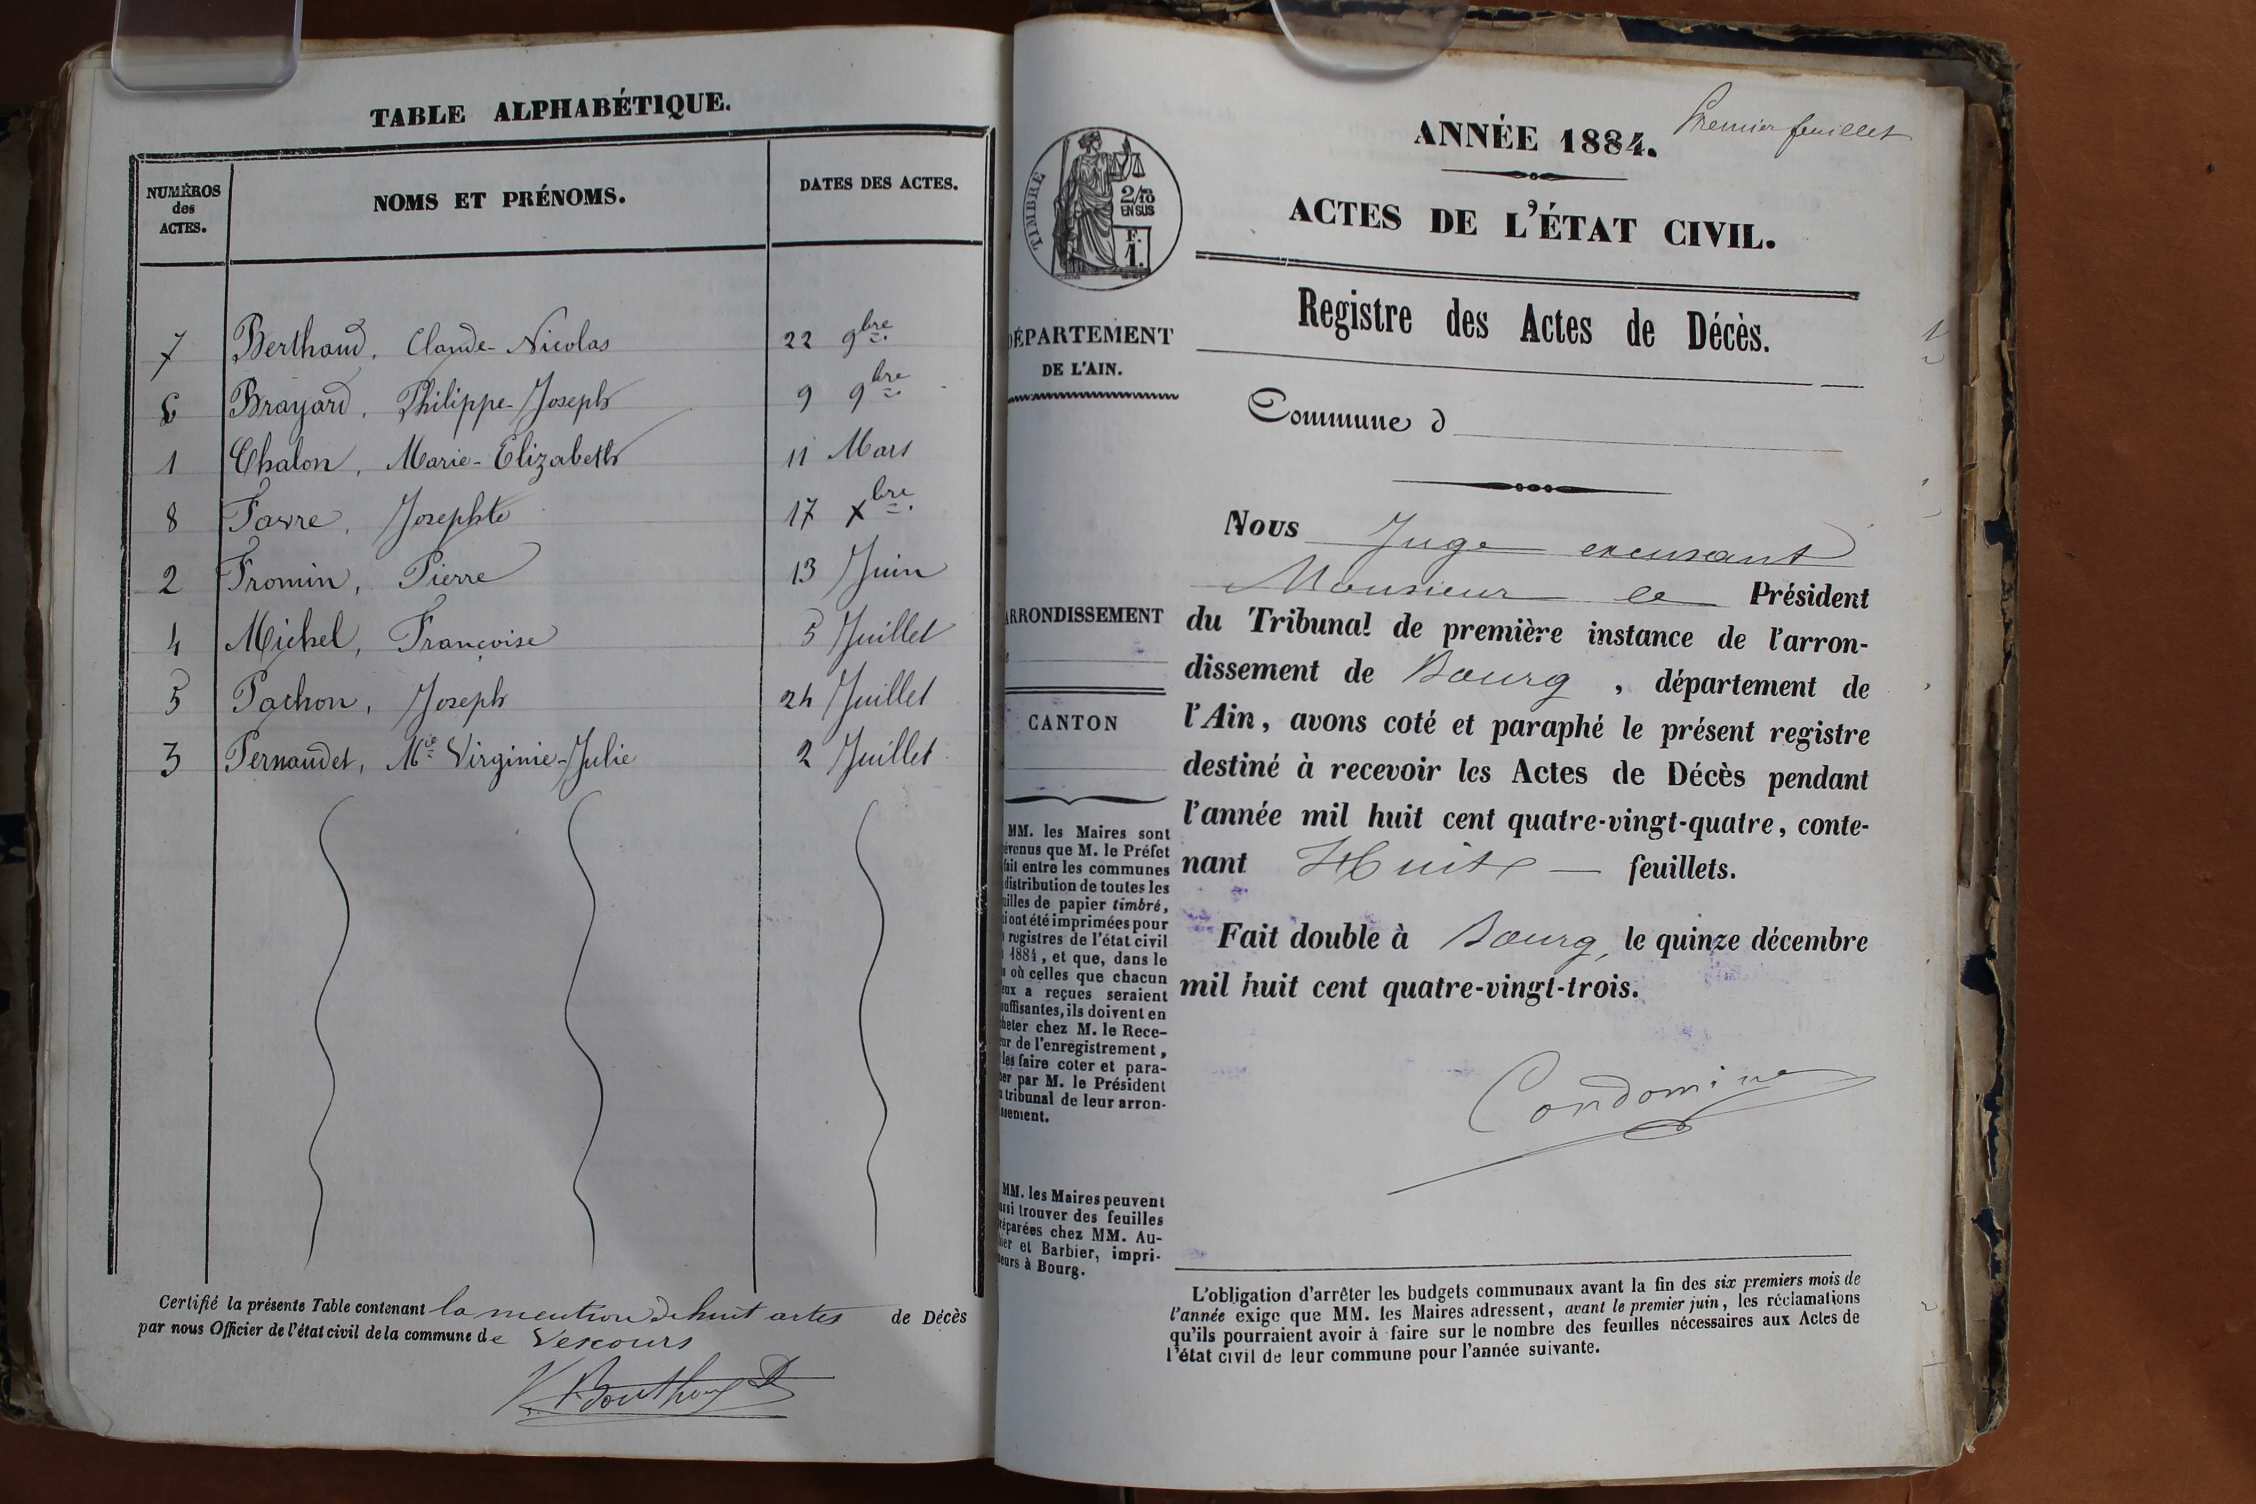 TABLE ALPHABÉTIQUE.
NUMÉROS des ACTES. NOMS ET PRÉNOMS. DATES DES ACTES.
7 Berthaud, Claude-Nicolas 22 9bre.
6 Brayard, Philippe-Joseph 9 9bre.
1 Chalon, Marie-Elizabeth 11 Mars
8 Favre, Josephte 17 Xbre.
2 Fromin, Pierre 13 Juin
4 Michel, Françoise 5 Juillet
5 Pachon, Joseph 24 Juillet
3 Pernaudet, Mie Virginie-Julie 2 Juillet
Certifié la présente Table contenant la mention de huit actes de Décès
par nous Officier de l'état civil de la commune de Vescours
Premier feuillet
ANNÉE 1884.
ACTES DE L'ÉTAT CIVIL.
TIMBRE
2/10
EN SUS
F.
1.
Registre des Actes de Décès.
DÉPARTEMENT
DE L'AIN.
Commune d
Nous Juge excusant
Monsieur le Président
du Tribunal de première instance de l'arron-
dissement de Bourg, département de
l'Ain, avons coté et paraphé le présent registre
destiné à recevoir les Actes de Décès pendant
l'année mil huit cent quatre-vingt-quatre, conte-
nant Huit feuillets.
Fait double à Bourg, le quinze décembre
mil huit cent quatre-vingt-trois.
Condomine
ARRONDISSEMENT
CANTON
MM. les Maires sont
évenus que M. le Préfet
fait entre les communes
distribution de toutes les
uilles de papier timbré,
i ont été imprimées pour
registres de l'état civil
1884, et que, dans le
où celles que chacun
eux a reçues seraient
suffisantes, ils doivent en
heter chez M. le Rece-
ur de l'enregistrement,
les faire coter et para-
er par M. le Président
tribunal de leur arron-
ssement.
MM. les Maires peuvent
ussi trouver des feuilles
réparées chez MM. Au-
ier et Barbier, impri-
eurs à Bourg.
L'obligation d'arrêter les budgets communaux avant la fin des six premiers mois de
l'année exige que MM. les Maires adressent, avant le premier juin, les réclamations
qu'ils pourraient avoir à faire sur le nombre des feuilles nécessaires aux Actes de
l'état civil de leur commune pour l'année suivante.